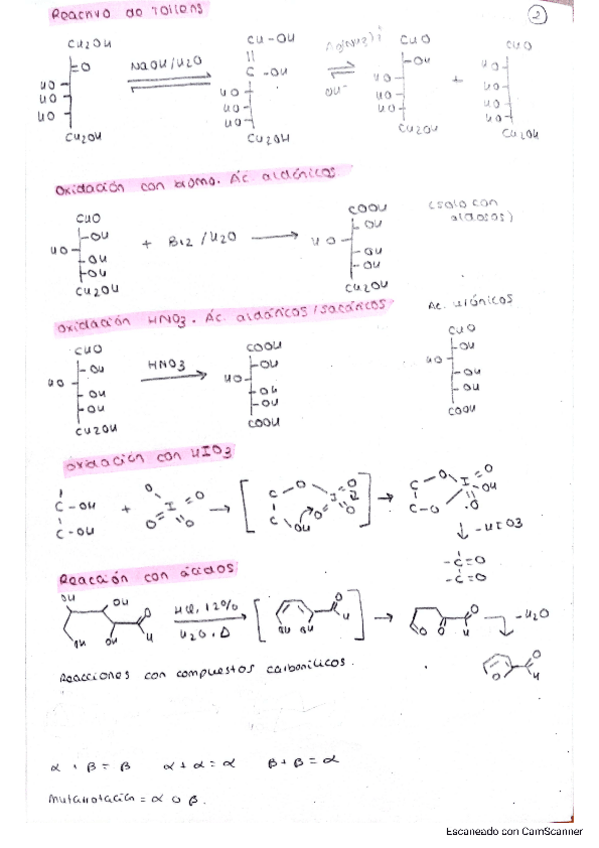 Reactivo de Tollens
2
CH2OH
=O
HO
HO
HO
CH2OH
NaOH/H2O
CH-OH
||
C-OH
HO
HO
HO
CH2OH
Ag(NH3)
OH-
CHO
OH
HO
HO
HO
CH2OH
+
CHO
HO
HO
HO
HO
CH2OH
Oxidación con bromo. Ác. aldónicos
CHO
OH
HO
OH
OH
CH2OH
+ Br2/H2O
COOH
OH
HO
OH
OH
CH2OH
(solo con
aldosas)
Oxidación HNO3. Ác. aldáricos/sacáricos
CHO
OH
HO
OH
OH
CH2OH
HNO3
COOH
OH
HO
OH
OH
COOH
Ac. urónicos
CHO
OH
HO
OH
OH
COOH
Oxidación con HIO3
C-OH
C-OH
+
O
I=O
O=
O
C-O
C
OH
I=O
O
O
C-O
C-O
I=O
OH
O
-HIO3
-C=O
-C=O
Reacción con ácidos
OH
OH
O
OH
OH
H
HCl, 12%
H2O, Δ
OH
OH
O
H
O
O
O
H
-H2O
O
O
H
Reacciones con compuestos carbonílicos.
α + β = β α + α = α β + β = α
Mutarrotación = α o β.
Escaneado con CamScanner